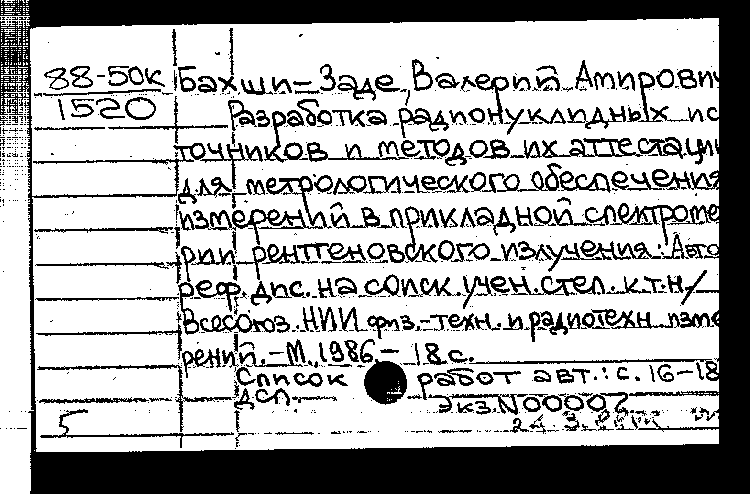 88-50к Бахши-Заде, Валерий Амирович
1520 Разработка радионуклидных ис
точников и методов их аттестации
для метрологического обеспечения
измерений в прикладной спектроме
рии рентгеновского излучения: Авто
реф. дис. на соиск. учен. степ. к.т.н/
Всесоюз. НИИ физ.-техн. и радиотехн. изме
рений. - М., 1986. - 18 с.
Список работ авт.: с. 16-18
ДСП. Экз.N00002
5